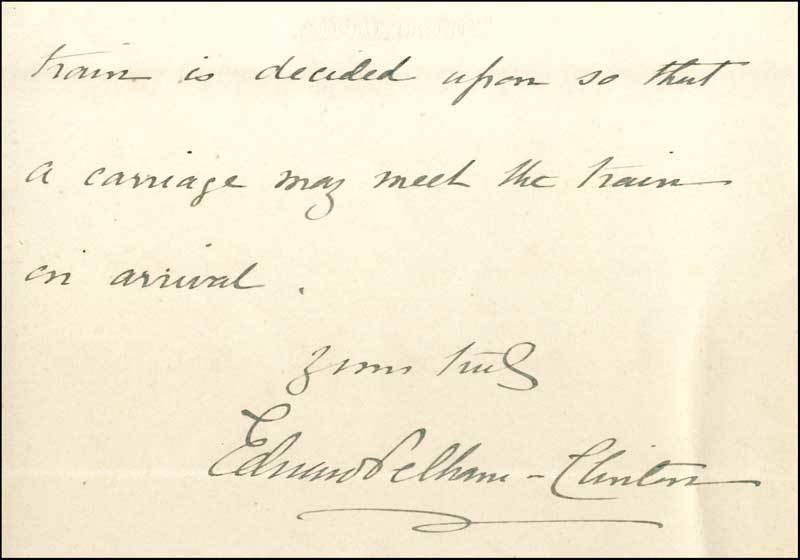 train is decided upon so that
a carriage may meet the train
on arrival .
Yours truly
Edward Pelham-Clinton